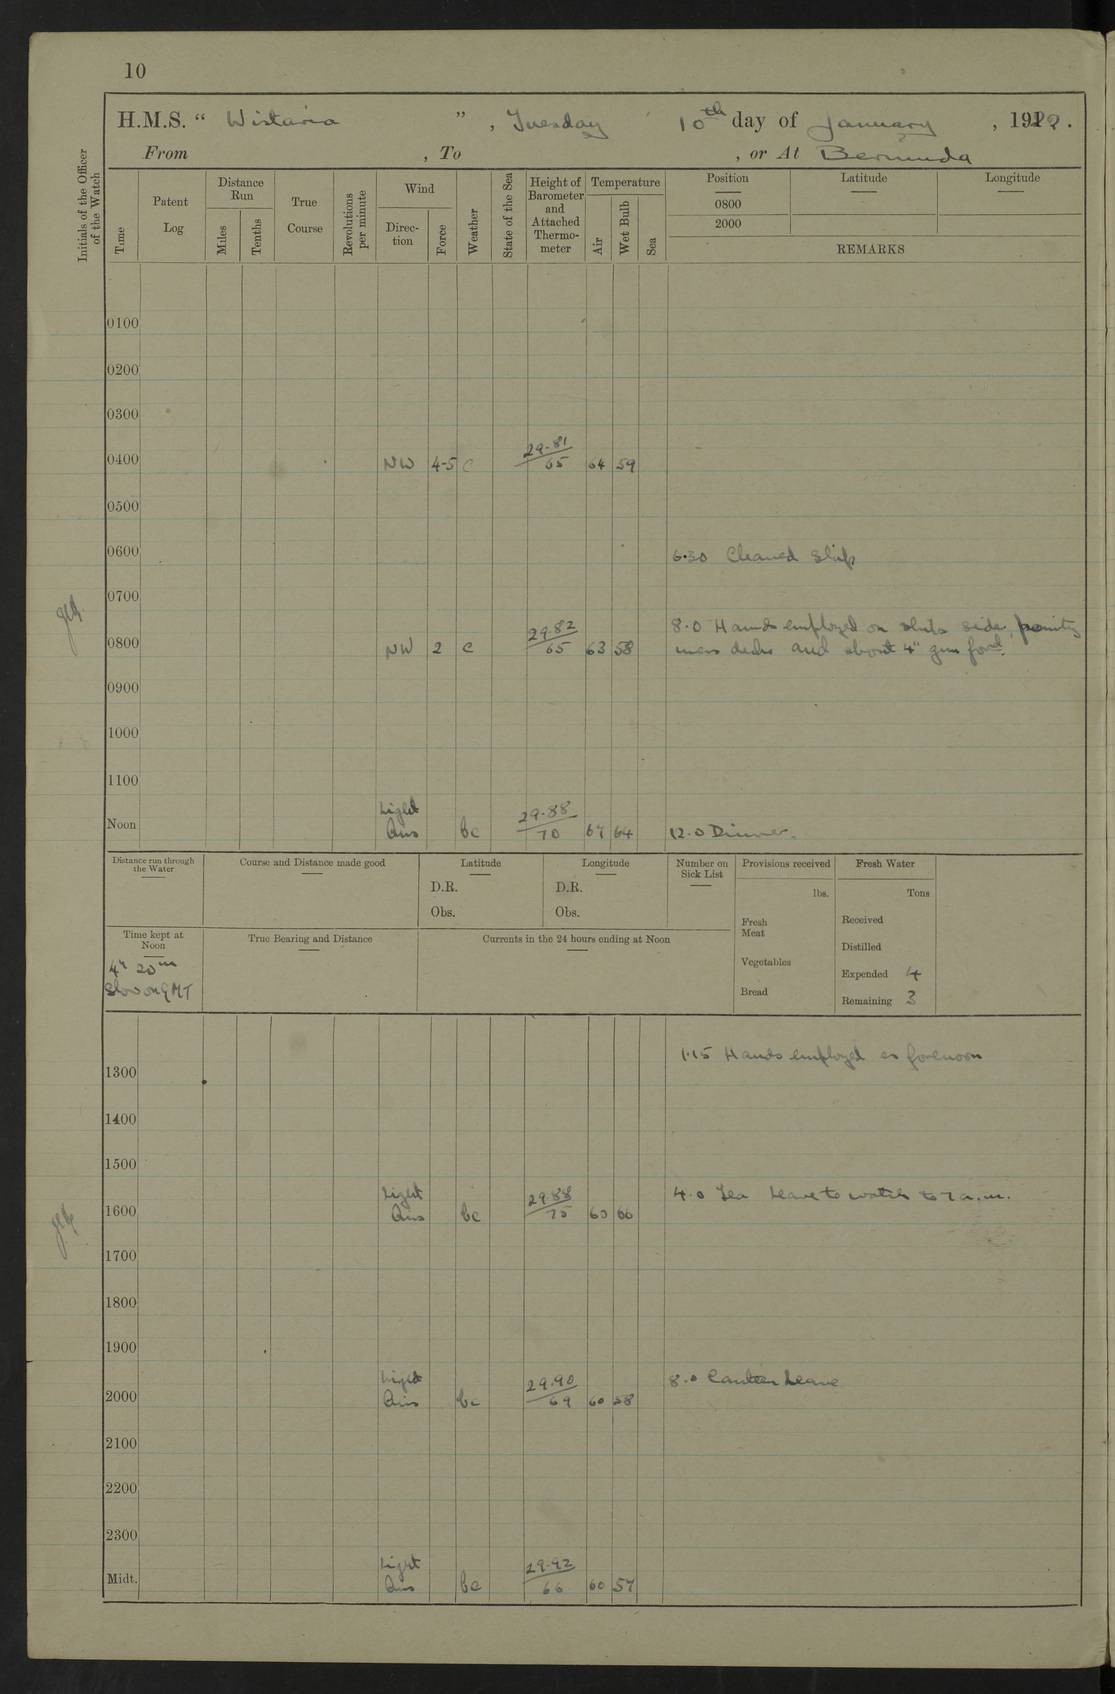 10
H.M.S. “ Wistaria ” , Tuesday 10th day of January , 1922 .
From , To , or At Bermuda
Initials of the Officer of the Watch
Time
Patent Log
Distance Run
Miles
Tenths
True Course
Revolutions per minute
Wind
Direc-tion
Force
Weather
State of the Sea
Height of Barometer and Attached Thermo-meter
Temperature
Air
Wet Bulb
Sea
Position Latitude Longitude
0800
2000
REMARKS
0100
0200
0300
0400 NW 4-5 c 29.81/65 64 59
0500
0600 6.30 Cleaned Ship
0700
8.0 Hands employed on ships side,
0800 NW 2 c 29.82/65 63 58 mess decks and about 4" gun ford.
0900
1000
1100
Noon Light Airs bc 29.88/70 64 12.0 Dinner.
Distance run through the Water
Course and Distance made good
Latitude
D.R.
Obs.
Longitude
D.R.
Obs.
Number on Sick List
Provisions received
lbs.
Fresh Meat
Vegetables
Bread
Fresh Water
Tons
Received
Distilled
Expended 4
Remaining 3
Time kept at Noon
4h 20m
Slow on GMT
True Bearing and Distance
Currents in the 24 hours ending at Noon
1.15 Hands employed as forenoon
1300
1400
1500
4.0 Tea Leave to watch to 7 a.m.
1600 Light Airs bc 29.88/75 66
1700
1800
1900
8.0 Canteen Leave
2000 Light Airs bc 29.90/69 60 58
2100
2200
2300
Midt. Light Airs bc 29.92/66 60 57